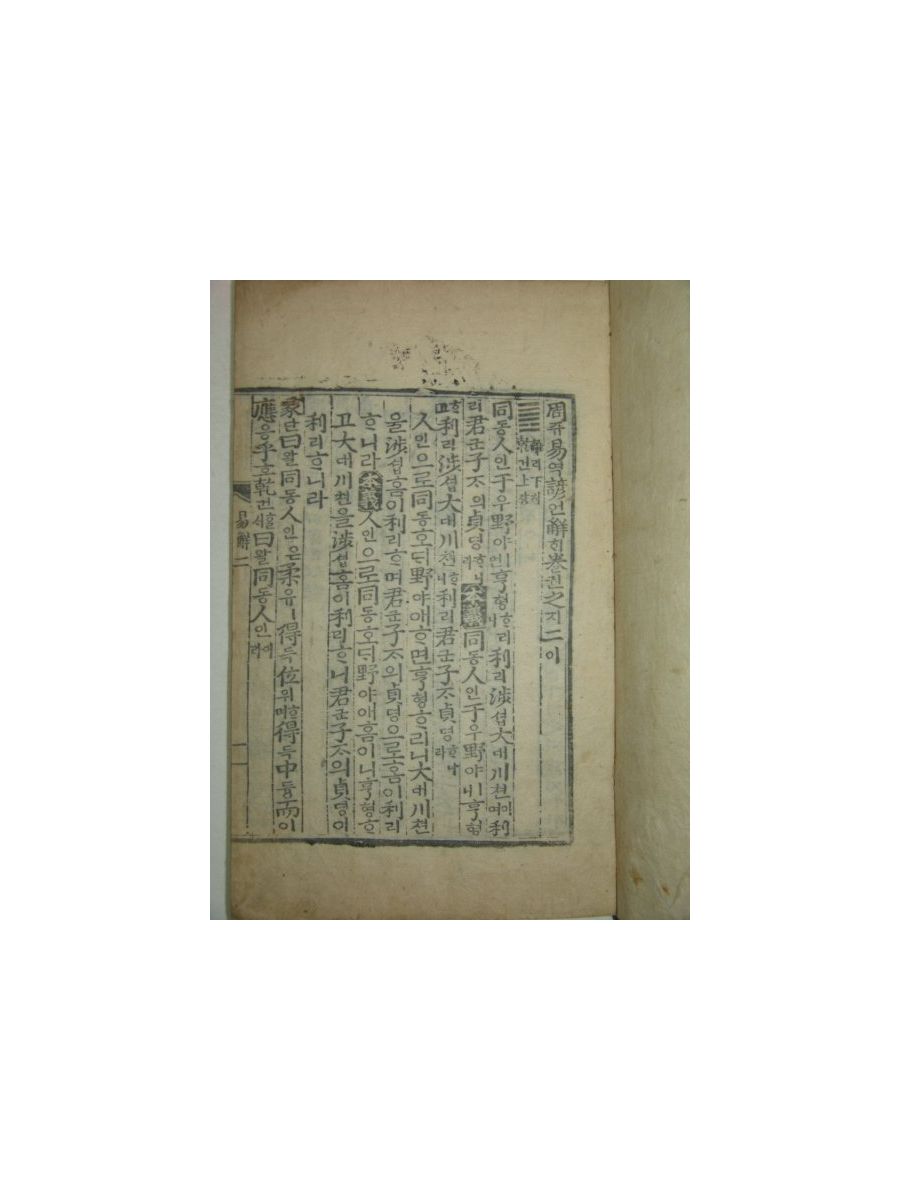 周쥬易역諺언解ᄒᆡ卷권之지二이
離리下하乾건上샹
同동人인于우野야ㅣ면亨형ᄒᆞ리니利리涉셥大대川쳔이며利
리君군子ᄌᆞ의貞뎡ᄒᆞ니라本義同동人인于우野야ㅣ니亨형
ᄒᆞ고利리涉셥大대川쳔ᄒᆞ니利리君군子ᄌᆞ貞뎡ᄒᆞ니라
人인으로同동호ᄃᆡ野야애ᄒᆞ면亨형ᄒᆞ리니大대川쳔
을涉셥홈이利리ᄒᆞ며君군子ᄌᆞ의貞뎡으로홈이利리
ᄒᆞ니라本義人인으로同동호ᄃᆡ野야애홈이니亨형ᄒᆞ
고大대川쳔을涉셥홈이利리ᄒᆞ니君군子ᄌᆞ의貞뎡이
利리ᄒᆞ니라
彖단曰왈同동人인은柔유ㅣ得득位위ᄒᆞ며得득中듕而이
應응乎호乾건ᄒᆞᆯᄉᆡ曰왈同동人인이라
易解二 一